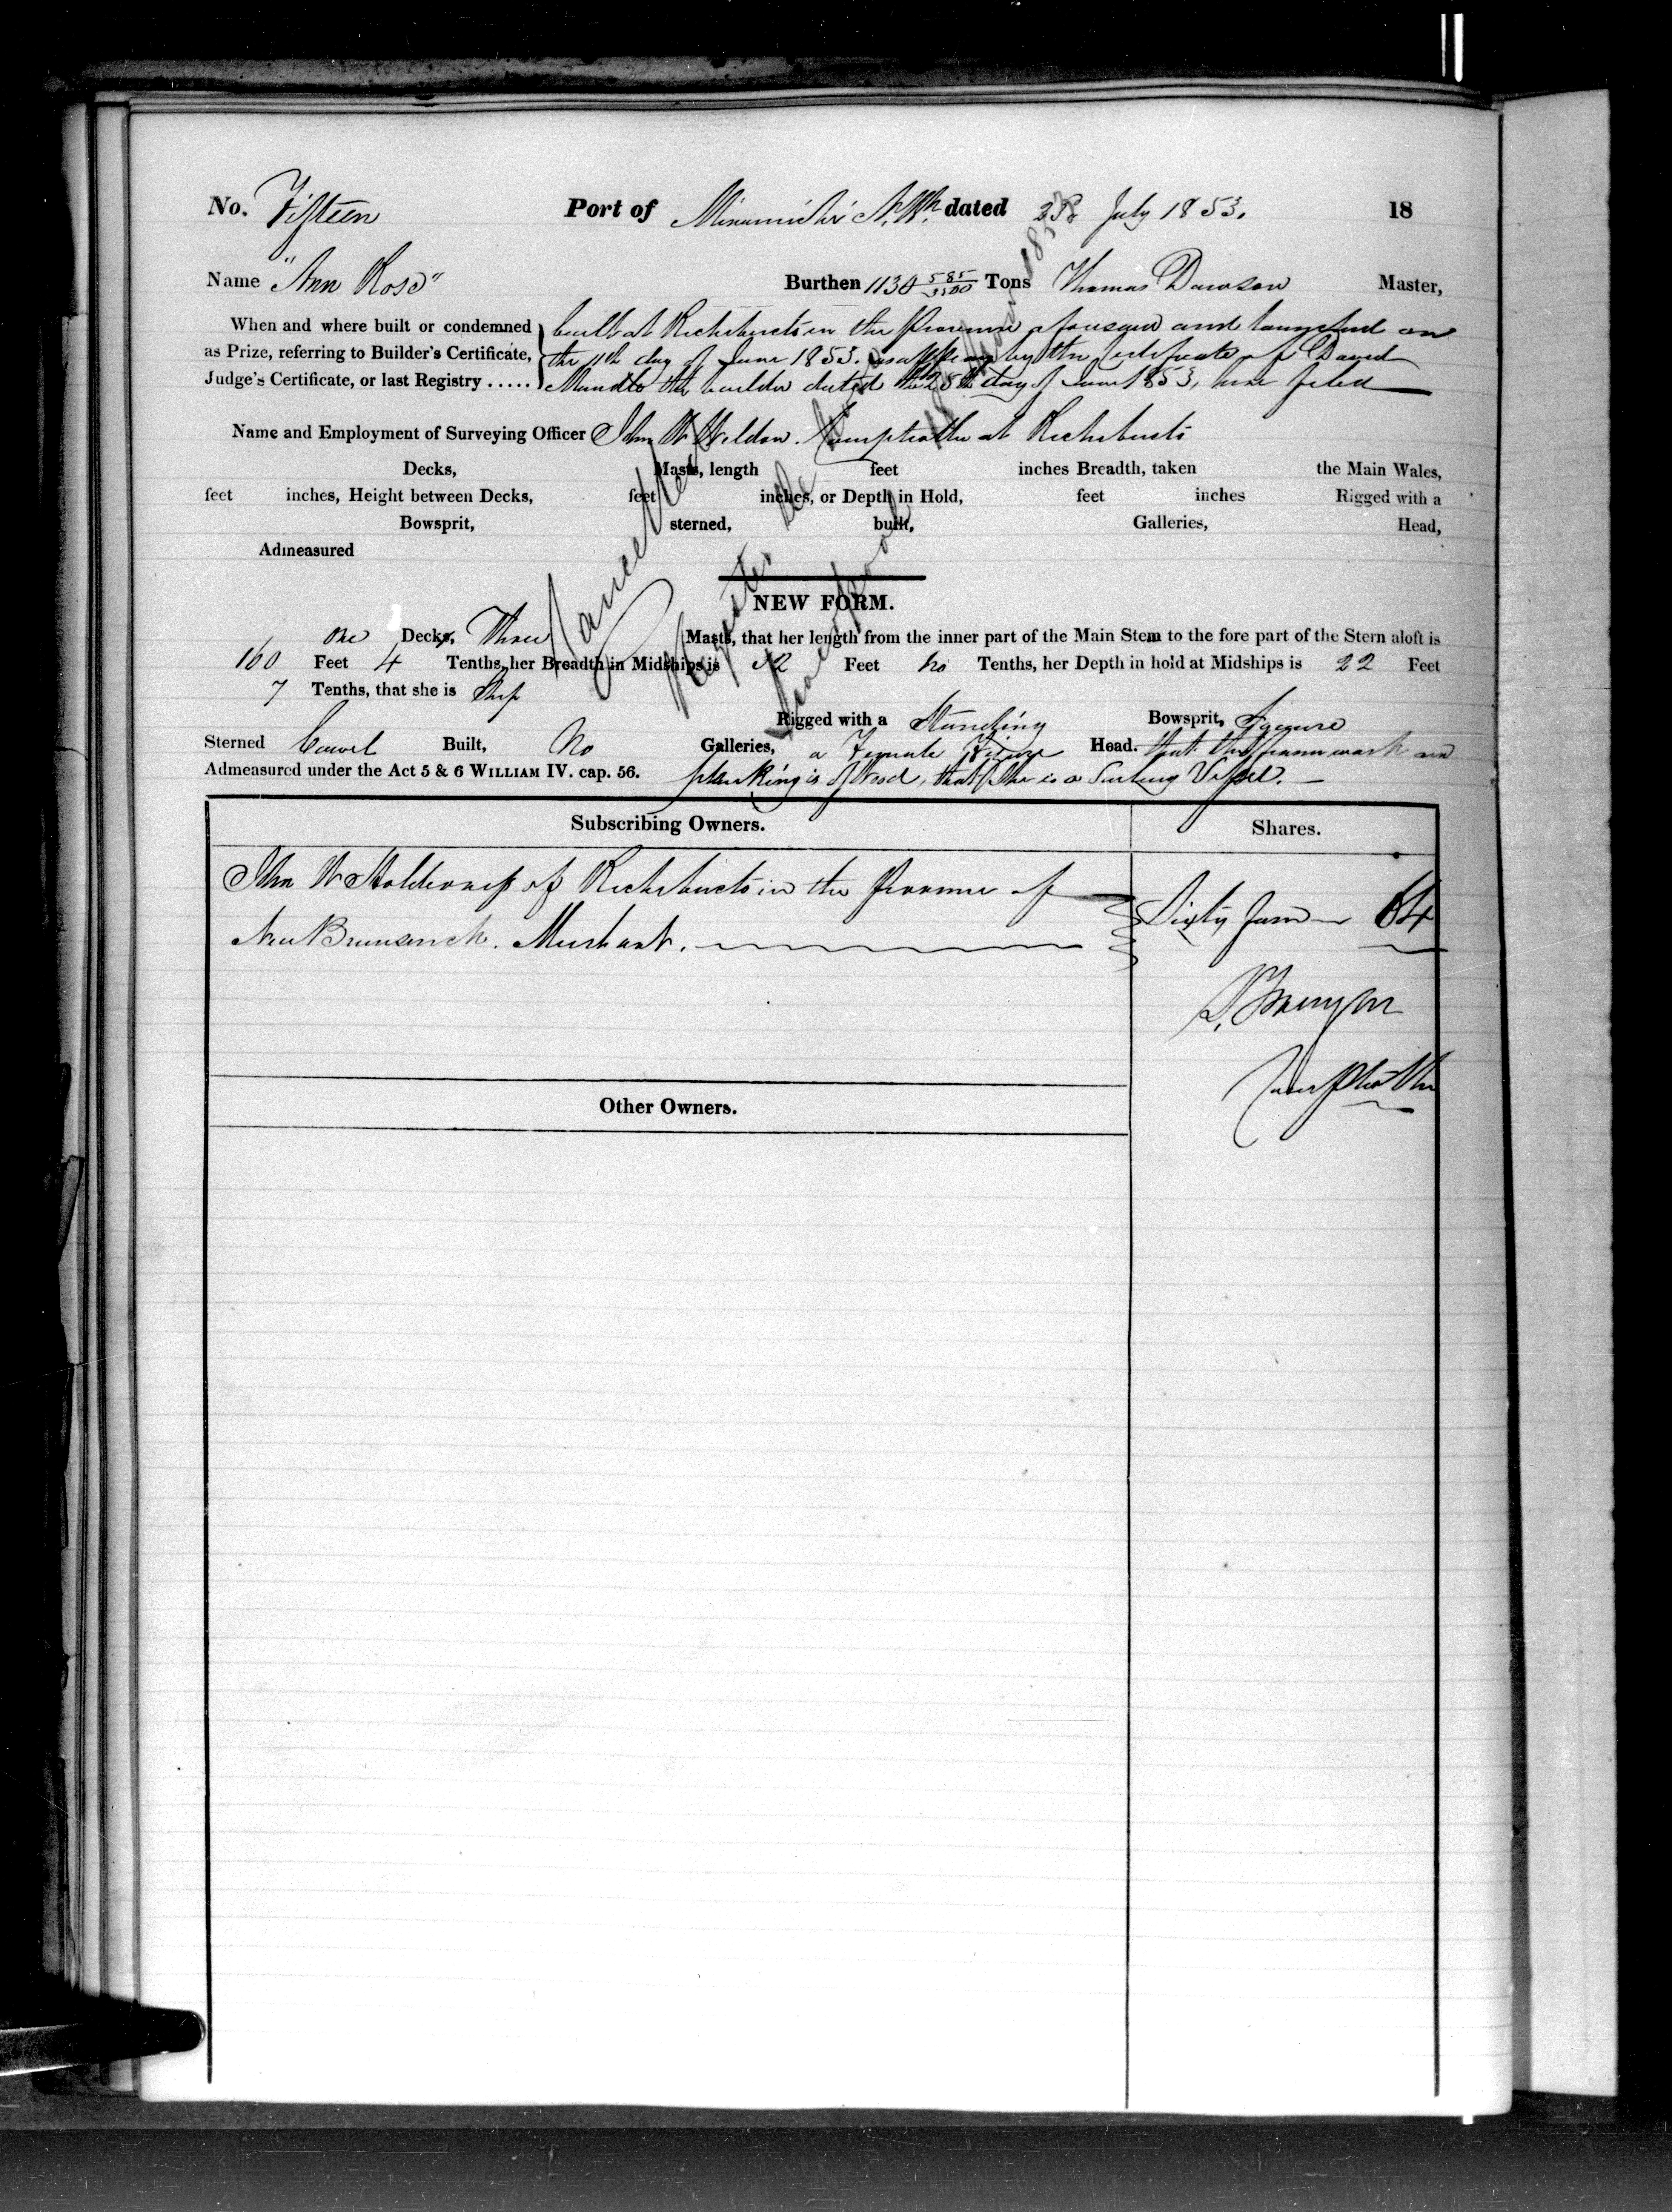 No. Fifteen Port of Miramichi N. Bk. dated 28 July 1853. 18
Name "Ann Rose" Burthen 1130 585/3500 Tons Thomas Dawson Master,
When and where built or condemned built at Richibucto in the Province aforesaid and launched on
as Prize, referring to Builder's Certificate, the 11th day of June 1853. as appears by the Certificate of David
Judge's Certificate, or last Registry ..... the builder dated the 25th day of June 1853, here filed
Name and Employment of Surveying Officer John W Weldon. Comptroller at Richibucto
Decks, Masts, length feet inches Breadth, taken the Main Wales,
feet inches, Height between Decks, feet inches, or Depth in Hold, feet inches Rigged with a
Bowsprit, sterned, built, Galleries, Head,
Admeasured
Cancelled
Register de
Liverpool
NEW FORM.
One Decks, Three Masts, that her length from the inner part of the Main Stem to the fore part of the Stern aloft is
160 Feet 4 Tenths, her Breadth in Midships is 32 Feet no Tenths, her Depth in hold at Midships is 22 Feet
7 Tenths, that she is Ship
Rigged with a Standing Bowsprit, Square
Sterned Carvel Built, No Galleries, a Female Figure Head. that the framework and
Admeasured under the Act 5 & 6 WILLIAM IV. cap. 56. planking is of Wood, that she is a Sailing Vessel.
Subscribing Owners. Shares.
John W Holderness of Richibucto in the Province of
New Brunswick. Merchant. Sixty four 64
Comptroller
Other Owners.